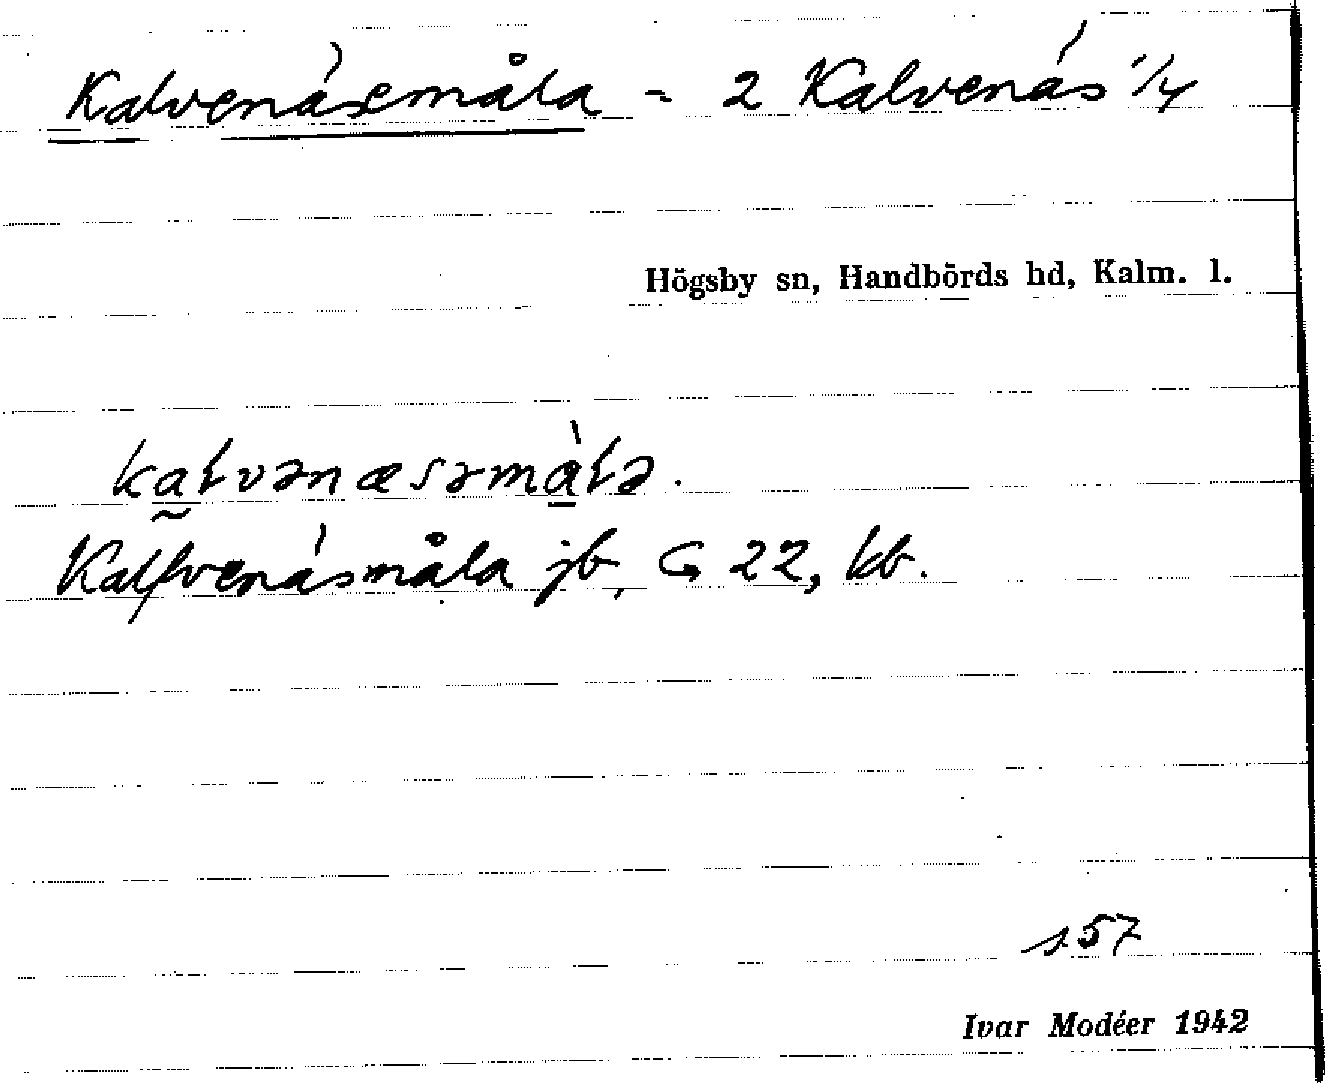 Kalvenäsemåla = 2 Kalvenäs 1/4
Högsby sn, Handbörds hd, Kalm. l.
Kalfvenäsmåla jb, G 22, kb.
157
Ivar Modéer 1942